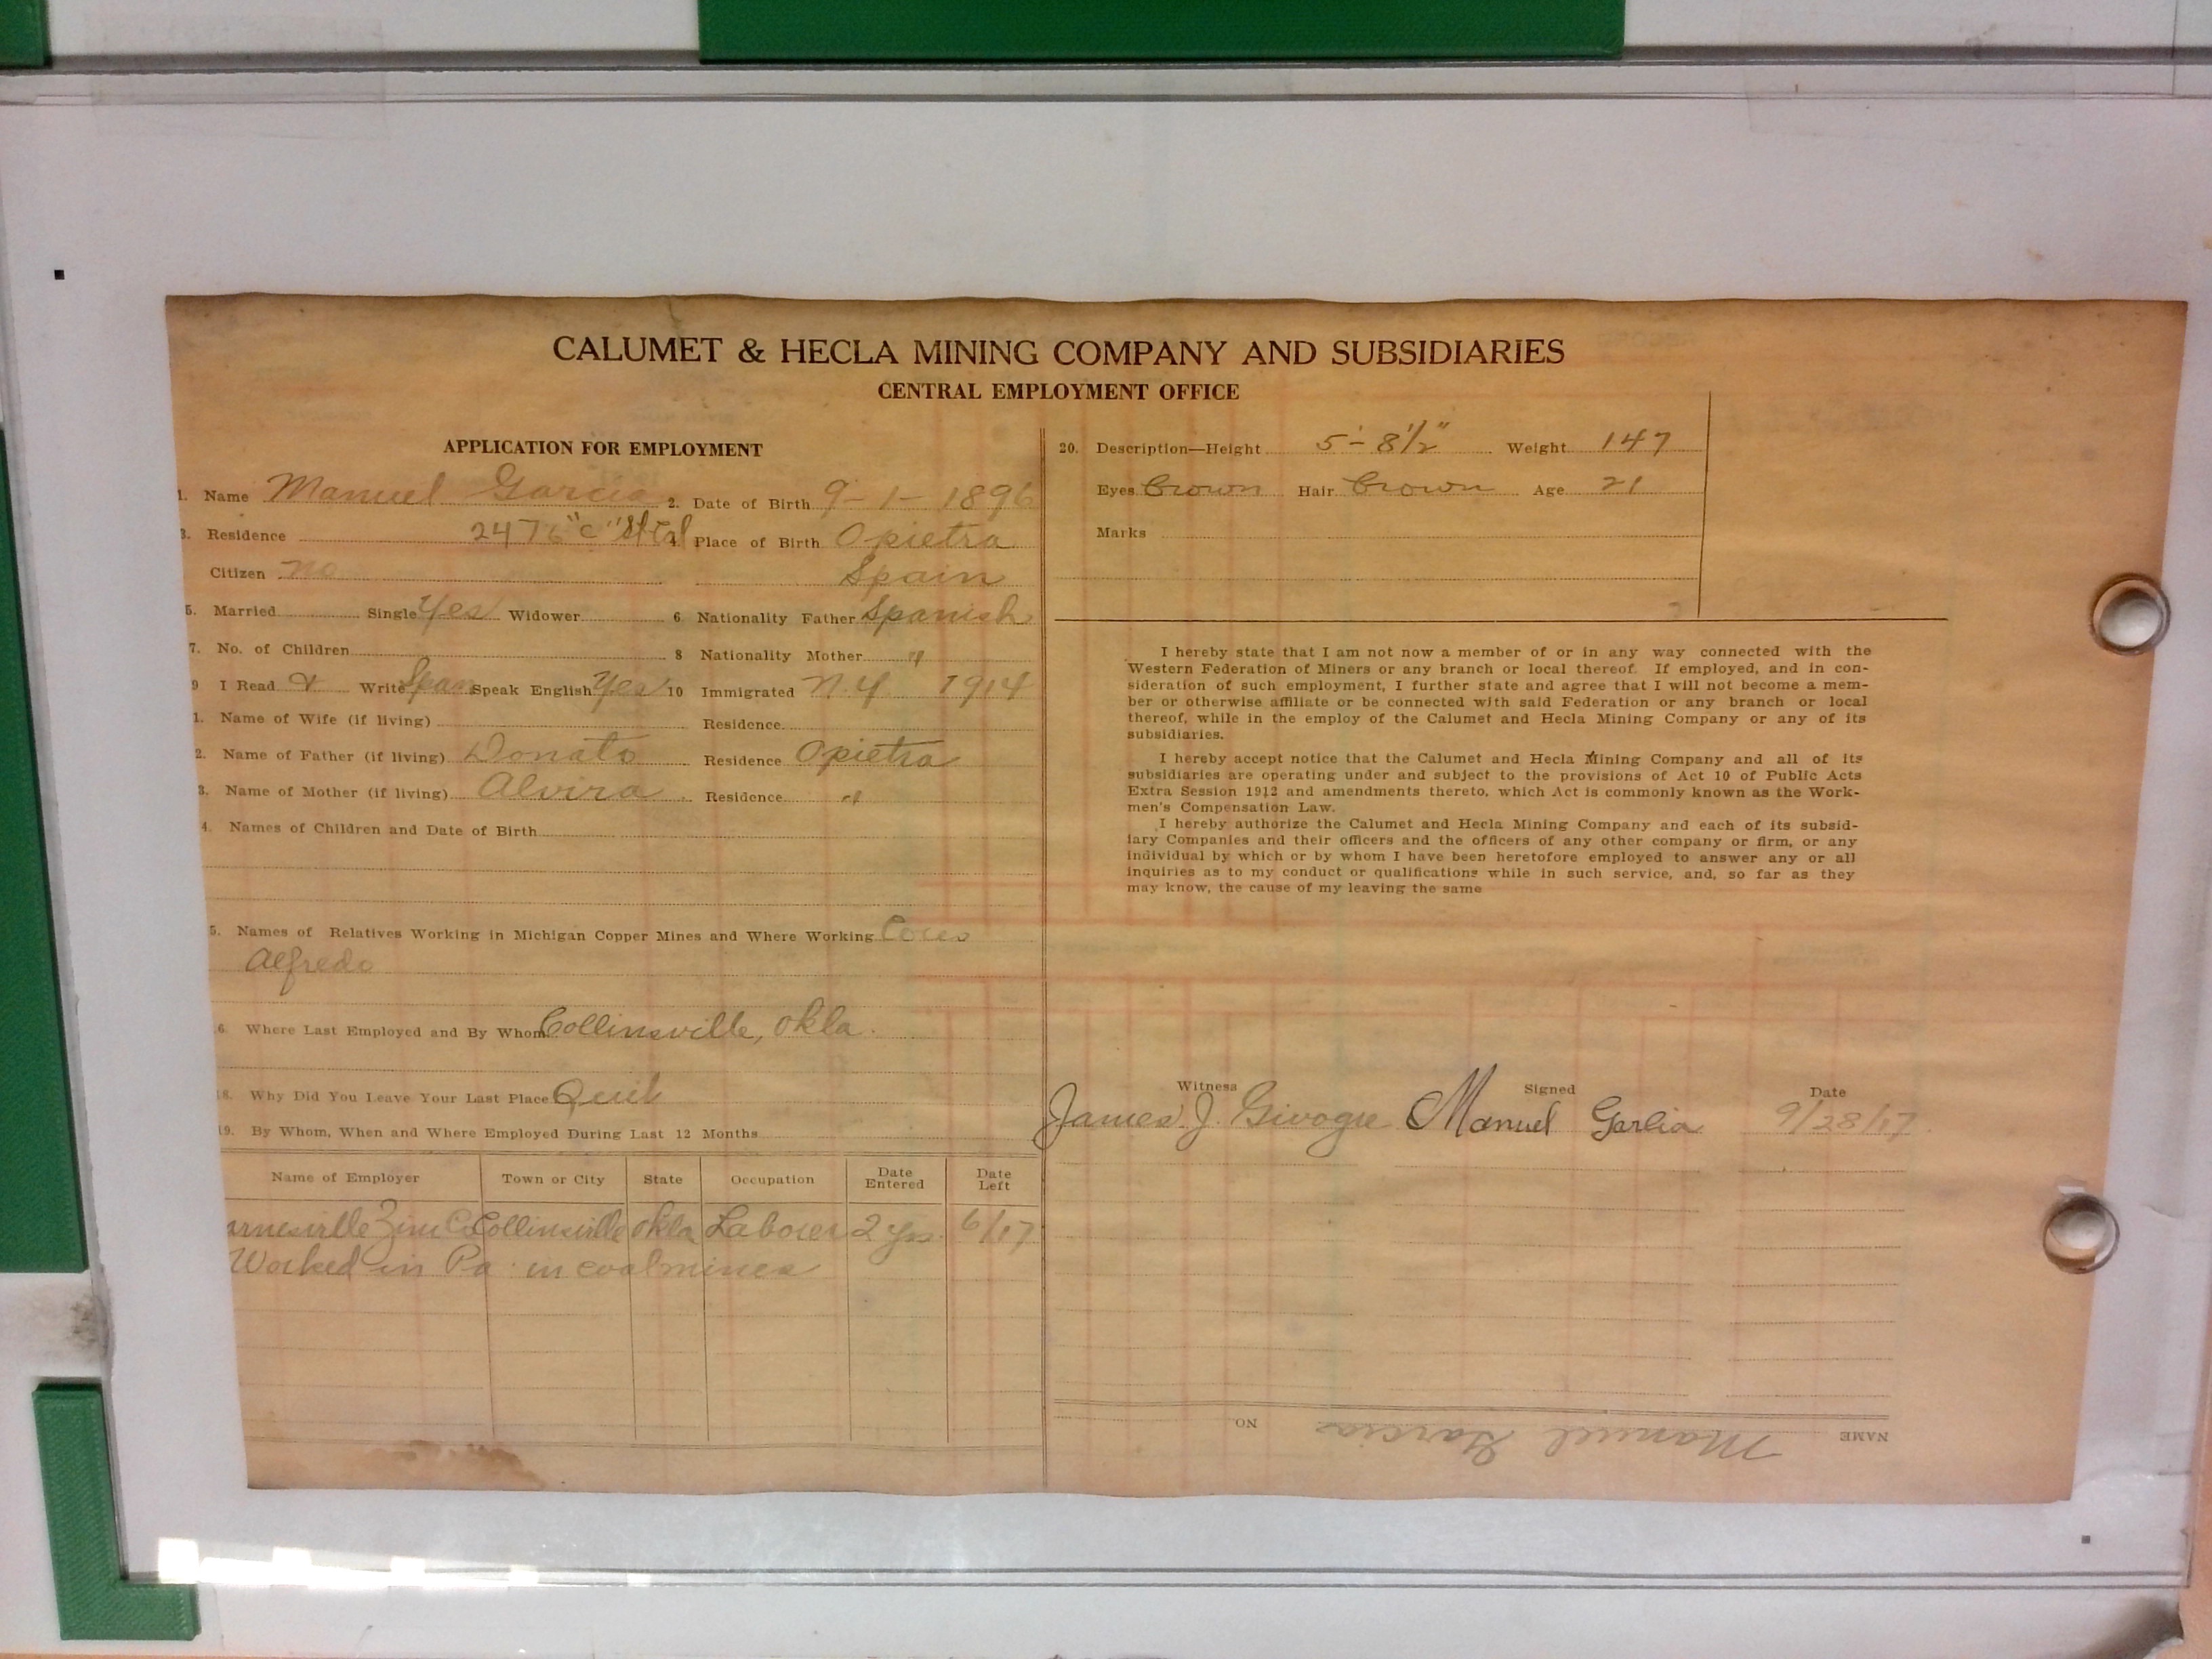 CALUMET & HECLA MINING COMPANY AND SUBSIDIARIES
CENTRAL EMPLOYMENT OFFICE
APPLICATION FOR EMPLOYMENT
1. Name Manuel Garcia 2. Date of Birth 9-1-1896
3. Residence 2476 "C" St Cal 4. Place of Birth Opietra
Citizen no Spain
5. Married Single Yes Widower 6 Nationality Father Spanish
7. No. of Children 8 Nationality Mother "
9 I Read & Write Span Speak English Yes 10 Immigrated N.Y. 1914
1. Name of Wife (if living) Residence
2. Name of Father (if living) Donato Residence Opietra
3. Name of Mother (if living) Alvira Residence "
4. Names of Children and Date of Birth
5. Names of Relatives Working in Michigan Copper Mines and Where Working
Alfredo
6. Where Last Employed and By Whom Collinsville, Okla.
18. Why Did You Leave Your Last Place Quit
19. By Whom, When and Where Employed During Last 12 Months
Name of Employer Town or City State Occupation Date Entered Date Left
arnesville Zinc Co Collinsville Okla Laborer 2 yrs. 6/17
Worked in Pa. in coal mines
20. Description—Height 5'-8½" Weight 147
Eyes Brown Hair Brown Age 21
Marks
I hereby state that I am not now a member of or in any way connected with the
Western Federation of Miners or any branch or local thereof. If employed, and in con-
sideration of such employment, I further state and agree that I will not become a mem-
ber or otherwise affiliate or be connected with said Federation or any branch or local
thereof, while in the employ of the Calumet and Hecla Mining Company or any of its
subsidiaries.
I hereby accept notice that the Calumet and Hecla Mining Company and all of its
subsidiaries are operating under and subject to the provisions of Act 10 of Public Acts
Extra Session 1912 and amendments thereto, which Act is commonly known as the Work-
men's Compensation Law.
I hereby authorize the Calumet and Hecla Mining Company and each of its subsid-
iary Companies and their officers and the officers of any other company or firm, or any
individual by which or by whom I have been heretofore employed to answer any or all
inquiries as to my conduct or qualifications while in such service, and, so far as they
may know, the cause of my leaving the same
Witness Signed Date
James J. Givogre Manuel Garlia 9/28/17
NAME Manuel Garcia NO.